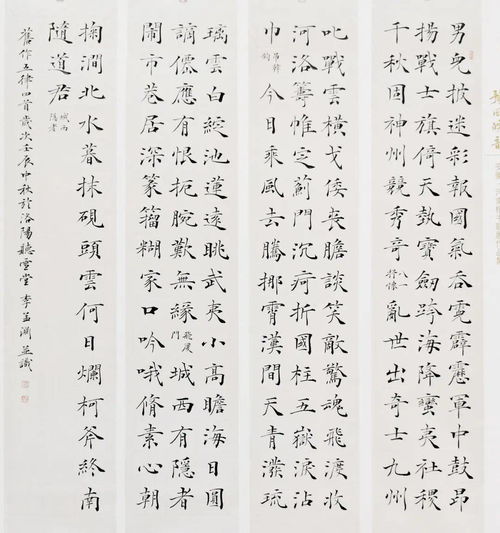 男兒披迷彩報國氣吞霓霹靂軍中鼓昂
揚戰士旗倚天執寶劍跨海降蠻夷社稷
千秋固神州競秀奇八一抒懷亂世出奇士九州
叱戰雲橫戈倭喪膽談笑敵驚魂飛渡收
河洛籌帷定薊門沉疴折國柱五嶽淚沾
巾吊韓鈞今日乘風去騰挪霄漢間天青潑琉
璃雲白綻池蓮遠眺武夷小高瞻海日圓
謫僊應有恨扼腕歎無緣飛廈門城西有隱者
鬧市巷居深篆籀糊家口吟哦脩素心朝
掬澗北水暮抹硯頭雲何日爛柯斧終南
隨道君城西隱者
舊作五律四首歲次壬辰中秋於洛陽聽雪堂 李孟淵並識